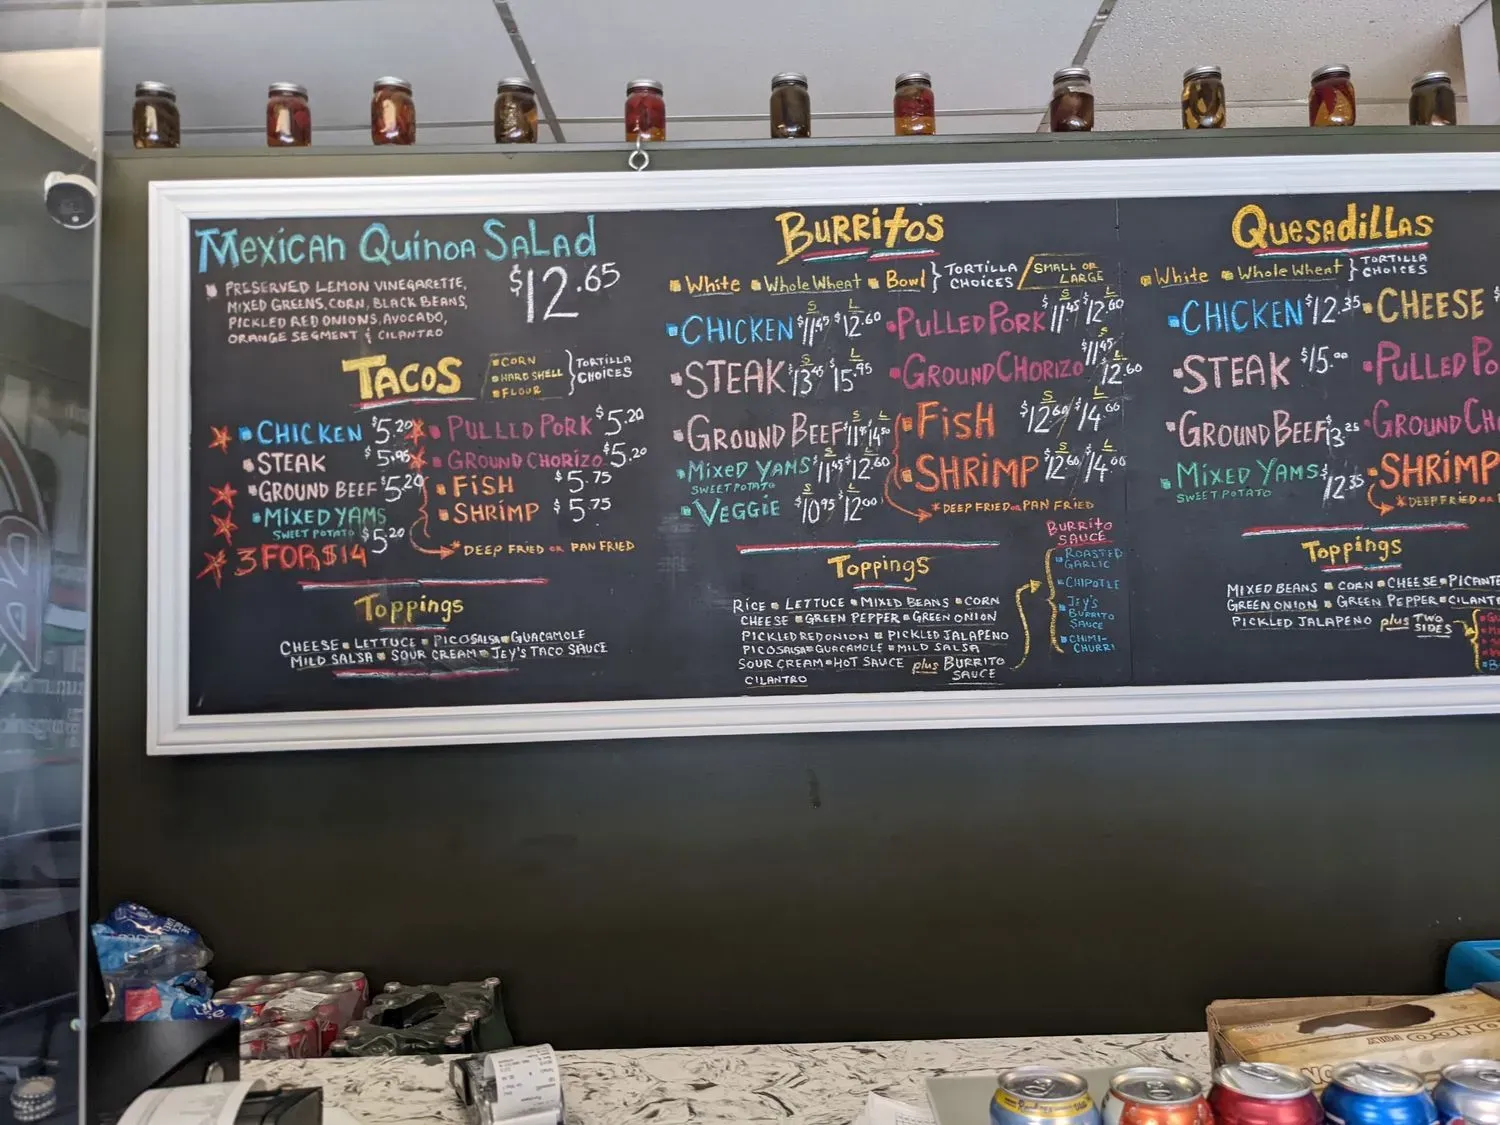 Mexican Quinoa Salad
$12.65
PRESERVED LEMON VINEGARETTE,
MIXED GREENS, CORN, BLACK BEANS,
PICKLED RED ONIONS, AVOCADO,
ORANGE SEGMENT & CILANTRO
TACOS
CORN
HARD SHELL
FLOUR
TORTILLA
CHOICES
CHICKEN $5.20
STEAK $5.95
GROUND BEEF $5.20
MIXED YAMS
SWEET POTATO $5.20
3 FOR $14
PULLED PORK $5.20
GROUND CHORIZO $5.20
FISH $5.75
SHRIMP $5.75
*DEEP FRIED OR PAN FRIED
Toppings
CHEESE LETTUCE PICO SALSA GUACAMOLE
MILD SALSA SOUR CREAM JEY'S TACO SAUCE
BURRITOS
White Whole Wheat Bowl
TORTILLA
CHOICES
SMALL OR
LARGE
S L
CHICKEN $11.45 $12.60
L
STEAK $13.45 $15.95
S L
GROUND BEEF
S L
MIXED YAMS $11.45 $12.60
SWEET POTATO
S L
VEGGIE $10.95 $12.00
S L
PULLED PORK $11.45 $12.60
S
GROUND CHORIZO $11.45
L
12.60
S L
FISH $12.60 $14.00
S L
SHRIMP $12.60 $14.00
*DEEP FRIED OR PAN FRIED
Toppings
RICE LETTUCE MIXED BEANS CORN
CHEESE GREEN PEPPER GREEN ONION
PICKLED RED ONION PICKLED JALAPENO
PICO SALSA GUACAMOLE MILD SALSA
SOUR CREAM HOT SAUCE plus BURRITO
SAUCE
CILANTRO
BURRITO
SAUCE
ROASTED
GARLIC
CHIPOTLE
JEY'S
BURRITO
SAUCE
CHIMI-
CHURRI
QUESADILLAS
White Whole Wheat
TORTILLA
CHOICES
CHICKEN $12.35
STEAK $15.00
GROUND BEEF $13.25
MIXED YAMS $12.35
SWEET POTATO
CHEESE $
PULLED PO
GROUND CHO
SHRIMP
*DEEP FRIED OR
Toppings
MIXED BEANS CORN CHEESE PICANTE
GREEN ONION GREEN PEPPER CILANT
PICKLED JALAPENO plus TWO
SIDES